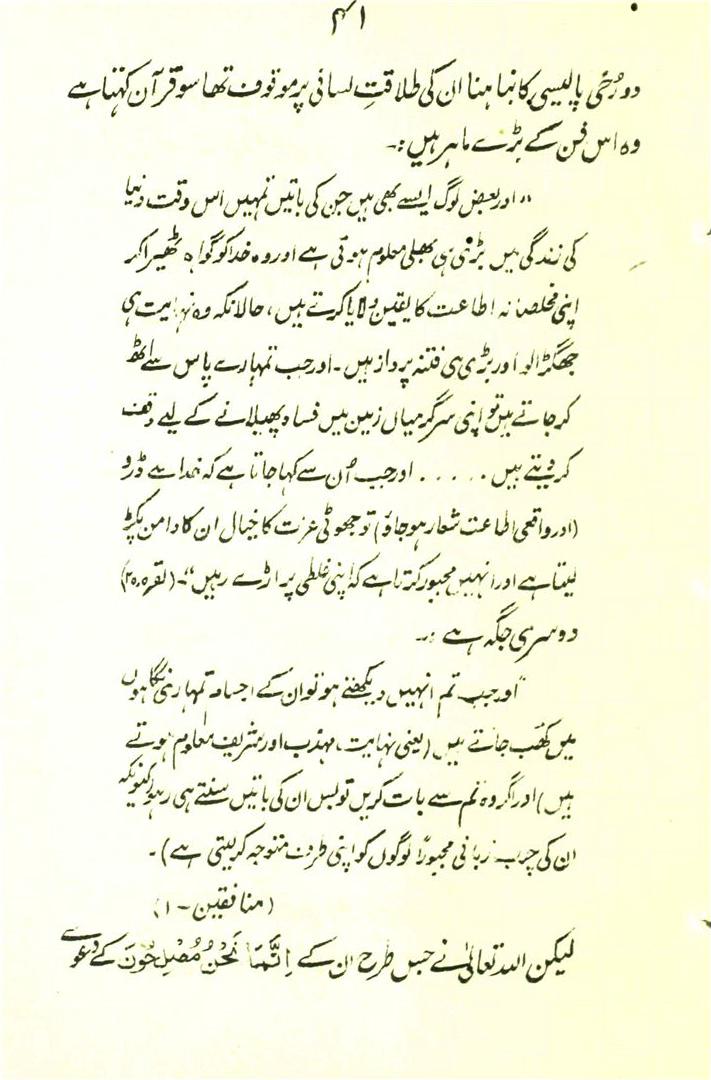 ۴۱
دو رُخی پالیسی کا نباہنا ان کی طلاقتِ لسانی پر موقوف تھا سو قرآن کہتا ہے
وہ اس فن کے بڑے ماہر ہیں :۔
”اور بعض لوگ ایسے بھی ہیں جن کی باتیں تمہیں اس وقت دنیا
کی زندگی میں بڑی ہی بھلی معلوم ہوتی ہے اور وہ خدا کو گواہ ٹھیرا کر
اپنی مخلصانہ اطاعت کا یقین دلایا کرتے ہیں، حالانکہ وہ نہایت ہی
جھگڑالو اور بڑی ہی فتنہ پرداز ہیں۔ اور جب تمہارے پاس سے اٹھ
کر جاتے ہیں تو اپنی سرگرمیاں زمین میں فساد پھیلانے کے لیے وقف
کر دیتے ہیں ..... اور جب اُن سے کہا جاتا ہے کہ خدا سے ڈرو
(اور واقعی اطاعت شعار ہو جاؤ) تو جھوٹی عزت کا خیال ان کا دامن پکڑ
لیتا ہے اور انہیں مجبور کرتا ہے کہ اپنی غلطی پر اڑے رہیں“۔ (بقرہ۔۲۵)
دوسری جگہ ہے :۔
”اور جب تم انہیں دیکھتے ہو تو ان کے اجسام تمہاری نگاہوں
میں کھُب جاتے ہیں (یعنی نہایت، مہذب اور شریف معلوم ہوتے
ہیں) اور اگر وہ تم سے بات کریں تو بس ان کی باتیں سنتے ہی رہو (کیونکہ
ان کی چرب زبانی مجبوراً لوگوں کو اپنی طرف متوجہ کر لیتی ہے)۔
(منافقین - ۱)
لیکن اللہ تعالیٰ نے جس طرح ان کے اِنَّمَا نَحْنُ مُصْلِحُوْنَ کے دعوے